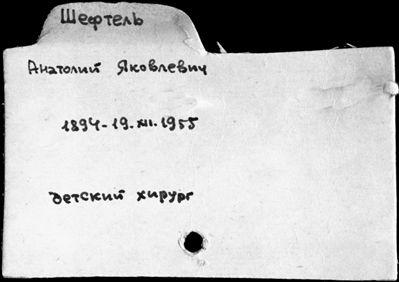 Шефтель
Анатолий Яковлевич
1894-19.XII.1955
детский хирург